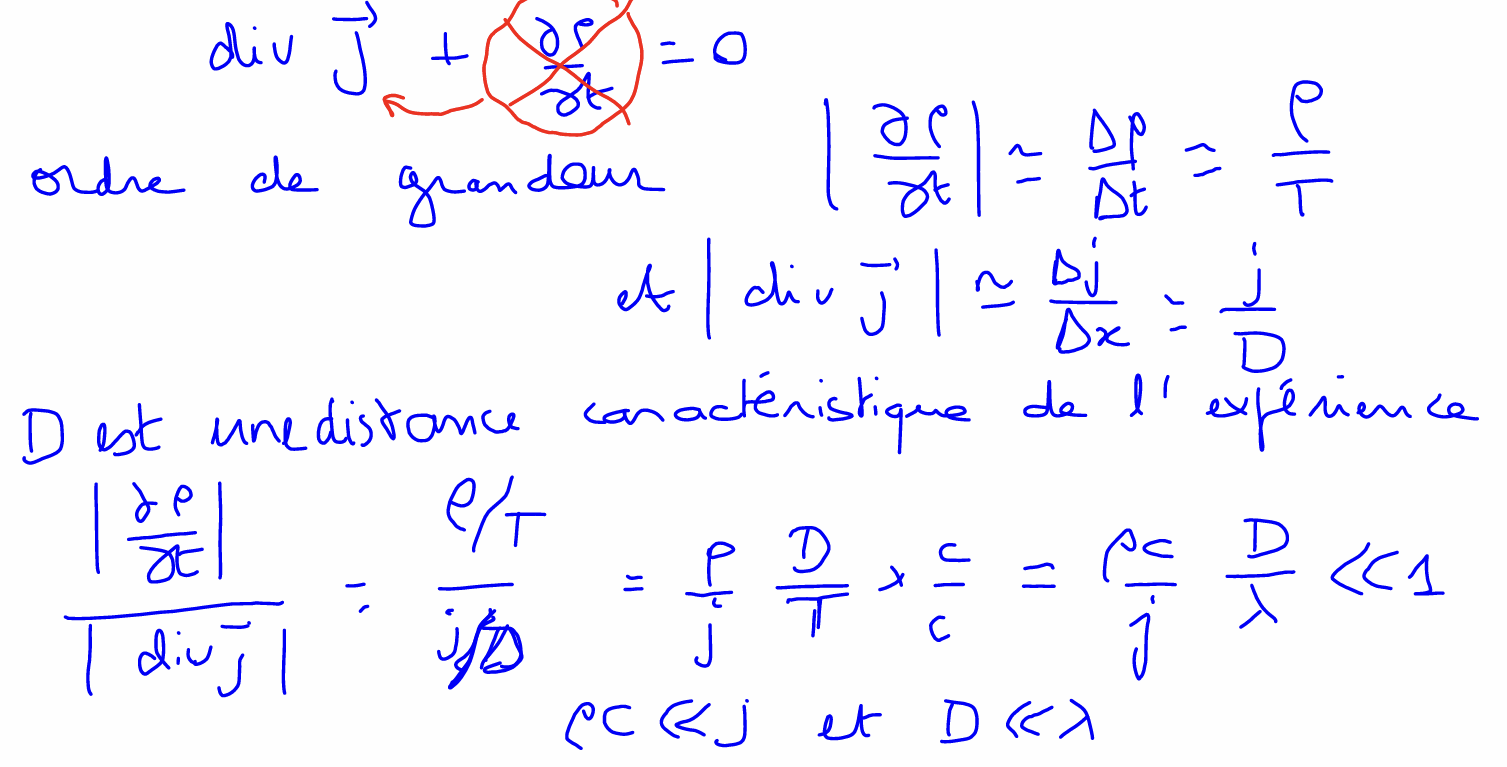 div j⃗ + ∂ρ/∂t = 0
ordre de grandeur |∂ρ/∂t| ≃ Δρ/Δt ≃ ρ/T
et |div j⃗| ≃ Δj/Δx ≃ j/D
D est une distance caractéristique de l'expérience
|∂ρ/∂t| / |div j⃗| = (ρ/T)/(j/D) = ρ/j D/T × c/c = ρc/j D/λ << 1
ρc << j et D << λ